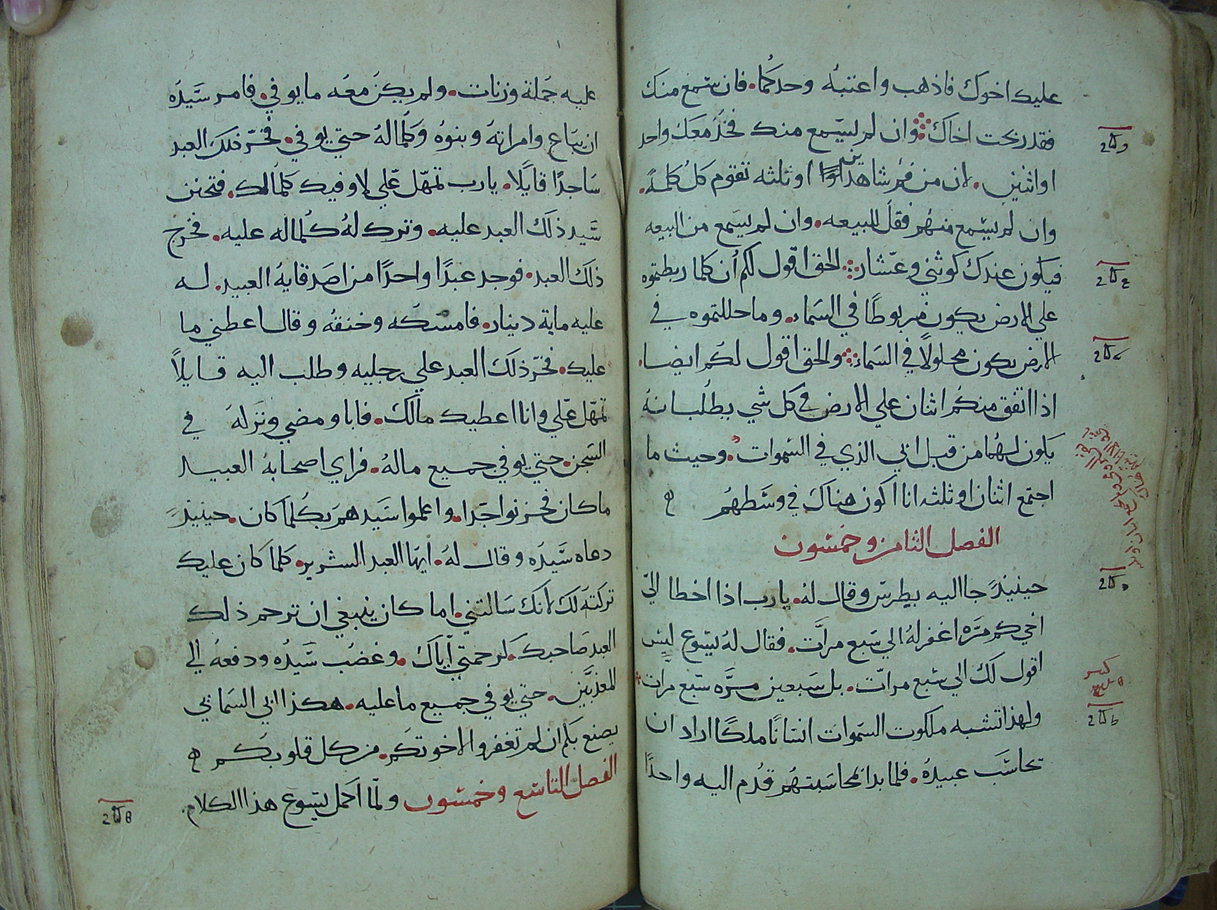 عليك اخوك فاذهب واعتبه وحدكما. فان سمع منك
فقد ربحت اخاك وان لم يسمع منك فخذ معك واحد
او اثنين. لان من فم شاهدين او ثلثه تقوم كل كلمة.
وان لم يسمع منهم فقل للبيعه. وان لم يسمع من البيعه
فيكون عندك كوثني وعشار الحق اقول لكم ان كلما ربطتموه
علي الارض يكون مربوطا في السماء. وما حللتموه في
الارض يكون محلولا في السماء والحق اقول لكم ايضا.
اذا اتفق منكم اثنان علي الارض في كل شي يطلبانه
يكون لهما من قبل ابي الذي في السموات. وحيث ما
اجتمع اثنان او ثلثه انا اكون هناك في وسطهم
الفصل الثامن وخمسون
حينيذ جا اليه بطرس وقال له. يارب اذا اخطا الي
اخي كم مره اغفر له الي سبع مرات. فقال له يسوع ليس
اقول لك الي سبع مرات. بل سبعين مره سبع مرات.
ولهذا تشبه ملكوت السموات انسانا ملكا اراد ان
يحاسب عبيده. فلما بدا لمحاسبتهم قدم اليه واحدا
عليه جملة وزنات. ولم يكن معه ما يوفي. فامر سيده
ان يباع وامراته وبنوه وكلما له حتي يوفي. فخر ذلك العبد
ساجدا قايلا. يارب تمهل علي لاوفيك كلما لك. فتحنن
سيد ذلك العبد عليه. وترك له كلما له عليه. فخرج
ذلك العبد. فوجد عبدا واحدا من اصدقايه العبيد. له
عليه ماية دينار. فامسكه وخنقه وقال اعطني ما
عليك. فخر ذلك العبد علي رجليه وطلب اليه قايلا
تمهل علي وانا اعطيك مالك. فابا ومضي وتركه في
السجن. حتي يوفي جميع ماله. فراي اصحابه العبيد
ما كان فحزنوا جدا. واعلموا سيدهم بكلما كان. حينيذ
دعاه سيده وقال له. ايها العبد الشرير. كلما كان عليك
تركته لك لانك سالتني. اما كان ينبغي ان ترحم ذلك
العبد صاحبك. كرحمتي اياك. وغضب سيده ودفعه الي
المعذبين. حتي يوفي جميع ما عليه. هكذا ابي السماني
يصنع بكم ان لم تغفروا لاخوتكم. من كل قلوبكم
الفصل التاسع وخمسون ولما اكمل يسوع هذا الكلام.